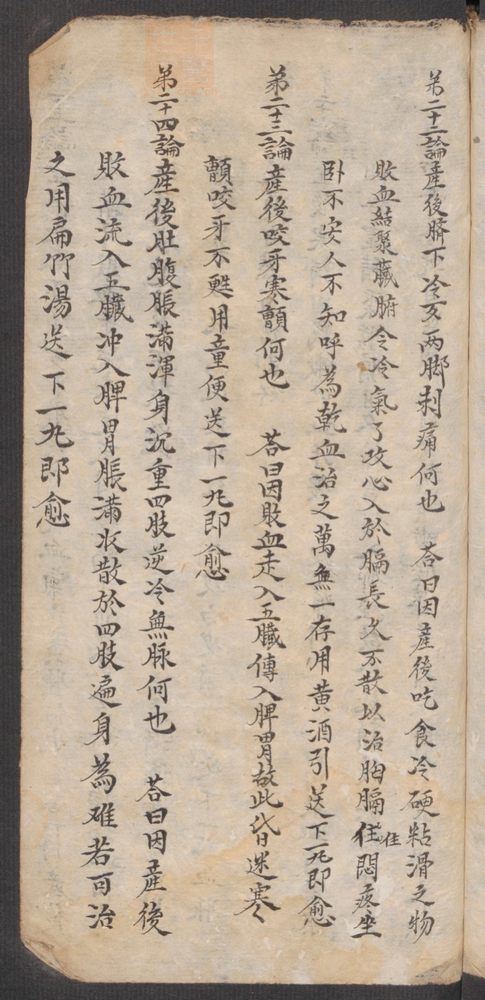 弟二十二論産後臍下冷及两脚刺痛何也　荅曰因産後吃食冷硬粘滑之物
敗血結聚藏腑令冷氣了攻心入於膈長久不散以治胸膈住住悶疼坐
卧不安人不知呼為乾血治之萬無一存用黄酒引送下一丸即愈
弟二十三論産後咬牙寒顫何也　荅曰因敗血走入五臟傳入脾胃故此昏迷寒
顫咬牙不甦用童便送下一丸即愈
弟二十四論産後肚腹脹滿渾身沉重四肢逆冷無脉何也　荅曰因産後
敗血流入五臟冲入脾胃脹滿收散於四肢遍身為难若可治
之用扁竹湯送下一丸即愈